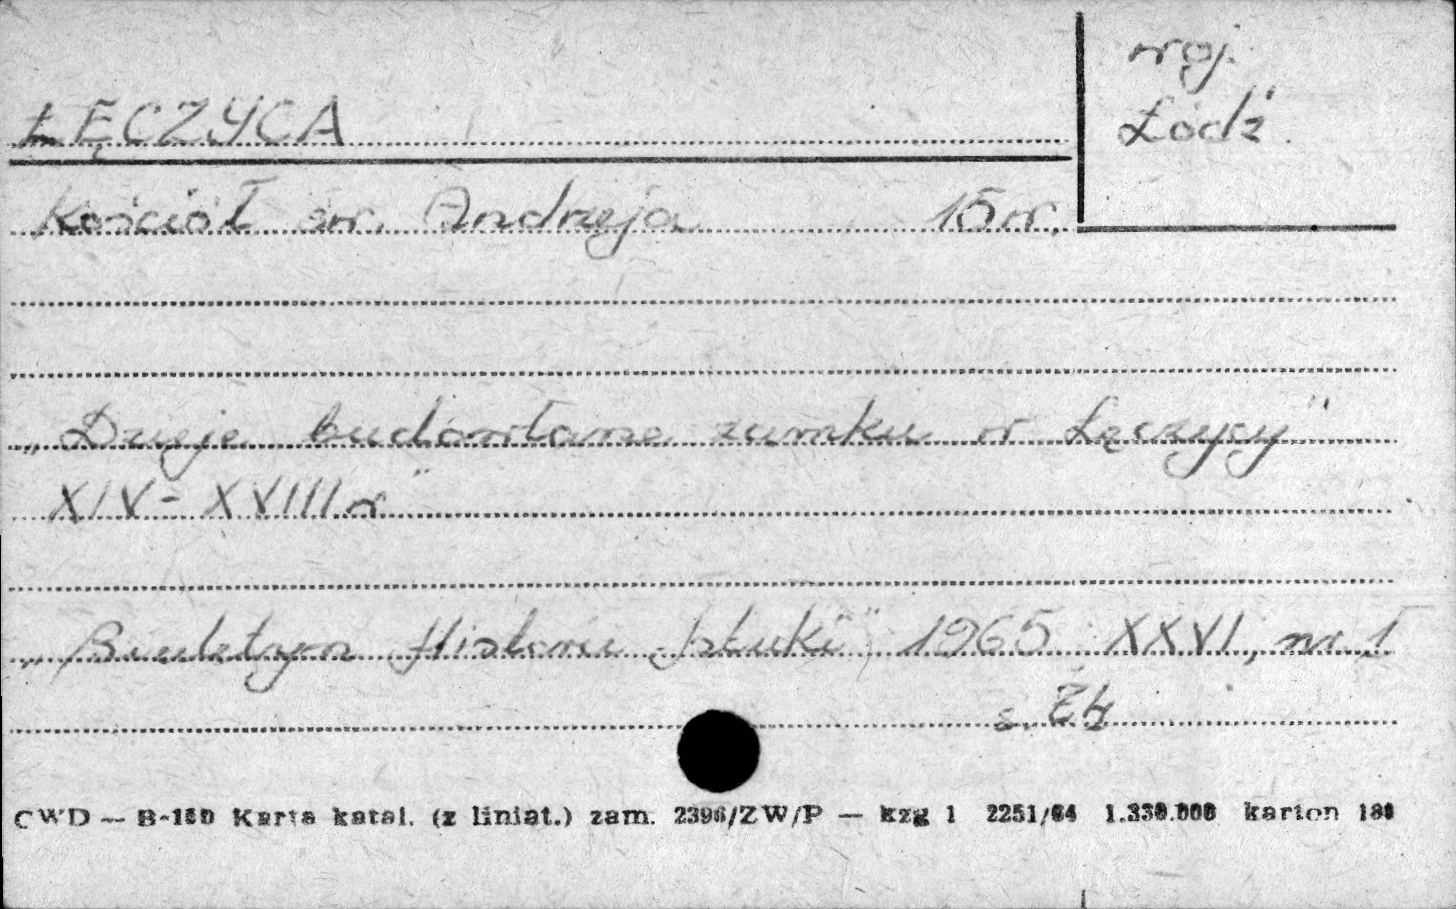 woj.
Łódź.
ŁĘCZYCA
Kościół św. Andrzeja 15 w.
„Dzieje budowlane zamku w Łęczycy"
XIV - XVIII w"
„Biuletyn Historii Sztuki" 1965 XXVI, nr 1
s.
CWD — B-180 Karta katal. (z liniat.) zam. 2396/ZW/P — kzg 1 2251/64 1.330.000 karton 180